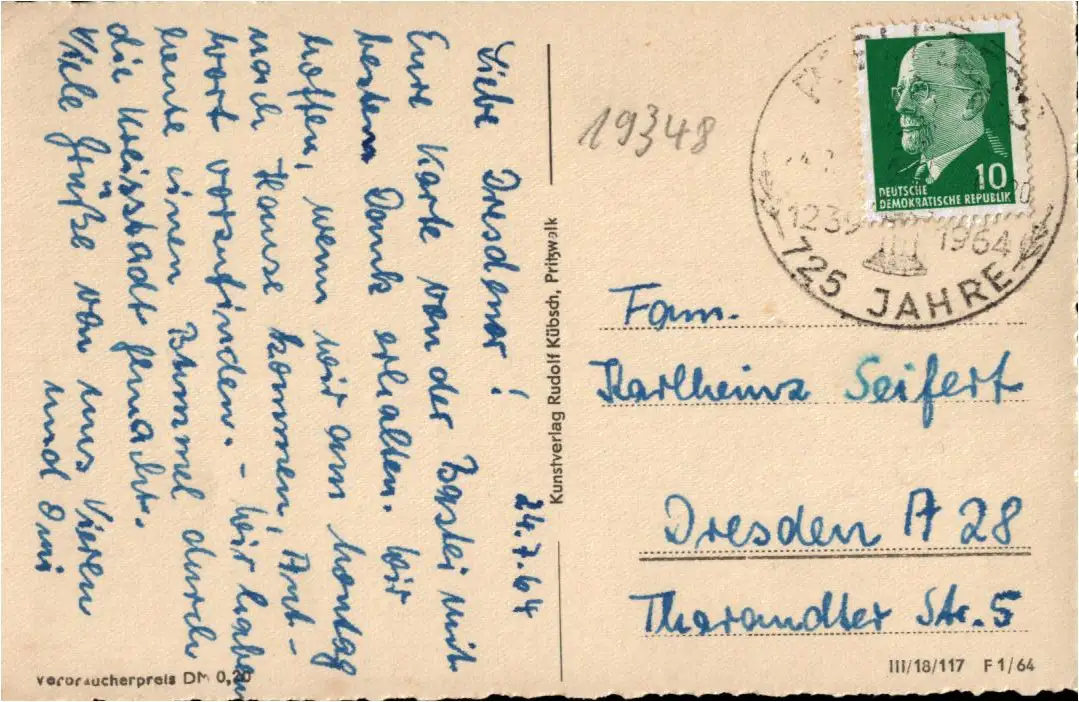 24.7.64
Liebe Dresdner!
Eure Karte von der Bastei mit
bestem Dank erhalten. Wir
hoffen, wenn wir am Montag
nach Hause kommen, Ant-
wort vorzufinden. - Wir haben
heute einen Bummel durch
die Kreisstadt gemacht.
Viele Grüße von uns Vieren
und Omi
Kunstverlag Rudolf Kübsch, Pritzwalk
Verbraucherpreis DM 0,20
19348
10
DEUTSCHE
DEMOKRATISCHE REPUBLIK
1239 1964
725 JAHRE
Fam.
Karlheinz Seifert
Dresden A 28
Tharandter Str. 5
III/18/117 F 1/64